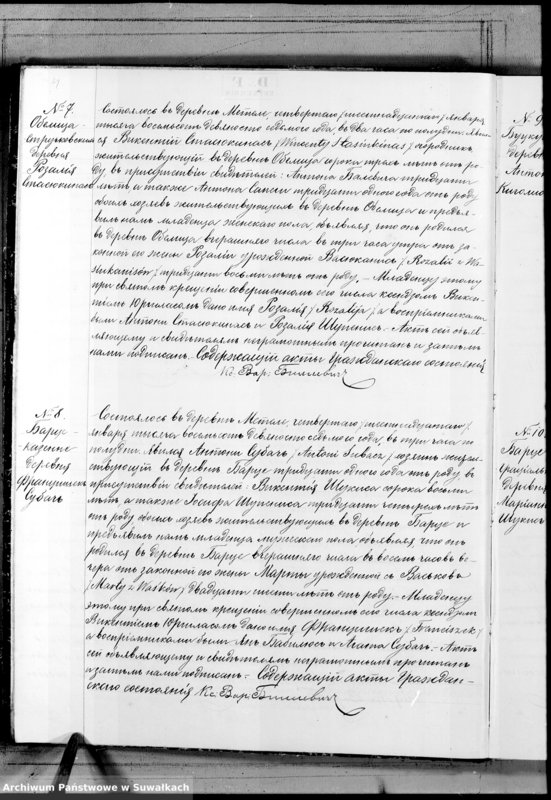 № 7.
Обелица-
Струковская
деревня
Розалія
Стасюкинасъ
Состоялось въ деревнѣ Метеле, четвертаго (шестнадцатаго) Января
тысяча восемьсотъ девяносто седьмого года, въ два часа по полудни. Явил-
ся Викентій Стасюкинасъ (Wincenty Stasiukinas)
жительствующій въ деревнѣ Обелица сорока трехъ лѣтъ отъ ро-
ду, въ присутствіи свидѣтелей: Антона тридцати
лѣтъ а также Антона тридцати одного года отъ роду
обоихъ жительствующихъ въ деревнѣ Обелица и предъя-
вилъ намъ младенца женскаго пола объявляя, что онъ родился
въ деревнѣ Обелица вчерашняго числа въ три часа утра отъ за-
конной его жены Розаліи урожденной (Rozalii z Wa-
тридцати восьми лѣтъ отъ роду. – Младенцу этому
при святомъ крещеніи совершенномъ сего числа ксендзомъ Викен-
тіемъ дано имя Розалія (Rozalija), а воспріемниками
были Антонъ Стасюкинасъ и Розалія – Актъ сей объяв-
ляющему и свидѣтелямъ неграмотнымъ прочитанъ и затѣмъ
нами подписанъ. – Содержащій акты Гражданскаго состоянія
Кс. Вар.
№ 8.
Барус-
деревня
Францишекъ
Субачъ
Состоялось въ деревнѣ Метеле, четвертаго (шестнадцатаго)
Января тысяча восемьсотъ девяносто седьмого года, въ три часа по
полудни. Явился Антонъ Субачъ (Antoni Subacz) житель-
ствующій въ деревнѣ Барусе тридцати одного года отъ роду, въ
присутствіи свидѣтелей: Викентія сорока восьми
лѣтъ а также Іосифа тридцати четырехъ лѣтъ
отъ роду обоихъ жительствующихъ въ деревнѣ Барусе и
предъявилъ намъ младенца мужескаго пола объявляя что онъ
родился въ деревнѣ Барусе вчерашняго числа въ восемь часовъ ве-
чера отъ законной его жены Марты урожденной съ Васьковъ
(Marty z Waśków) двадцати шести лѣтъ отъ роду. – Младенцу
этому при святомъ крещеніи совершенномъ сего числа ксендзомъ
Викентіемъ дано имя Францишекъ (Franciszek)
а воспріемниками были и Субачъ. – Актъ
сей объявляющему и свидѣтелямъ неграмотнымъ прочитанъ
и затѣмъ нами подписанъ. – Содержащій акты Граждан-
скаго состоянія Кс. Вар.
№ 9
деревня
Антон
№ 10
Барус
деревня
Маріанна
Archiwum Państwowe w Suwałkach